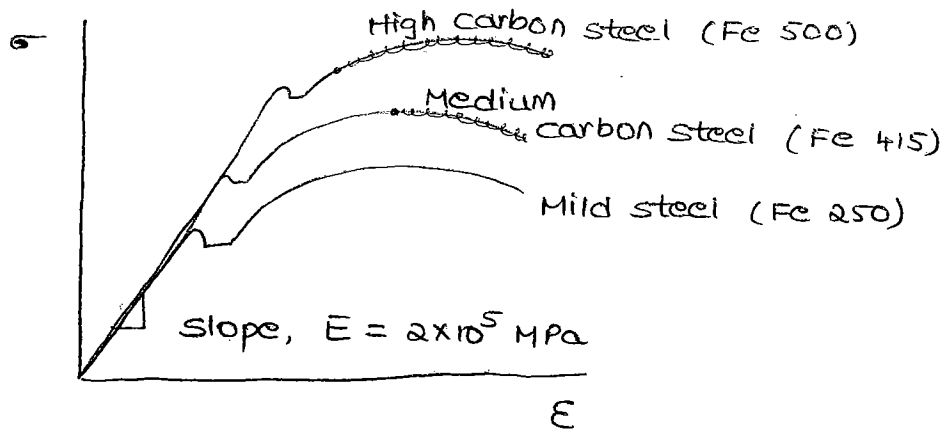 σ
High carbon steel (Fe 500)
Medium
carbon steel (Fe 415)
Mild steel (Fe 250)
slope, E = 2×10⁵ MPa
ε